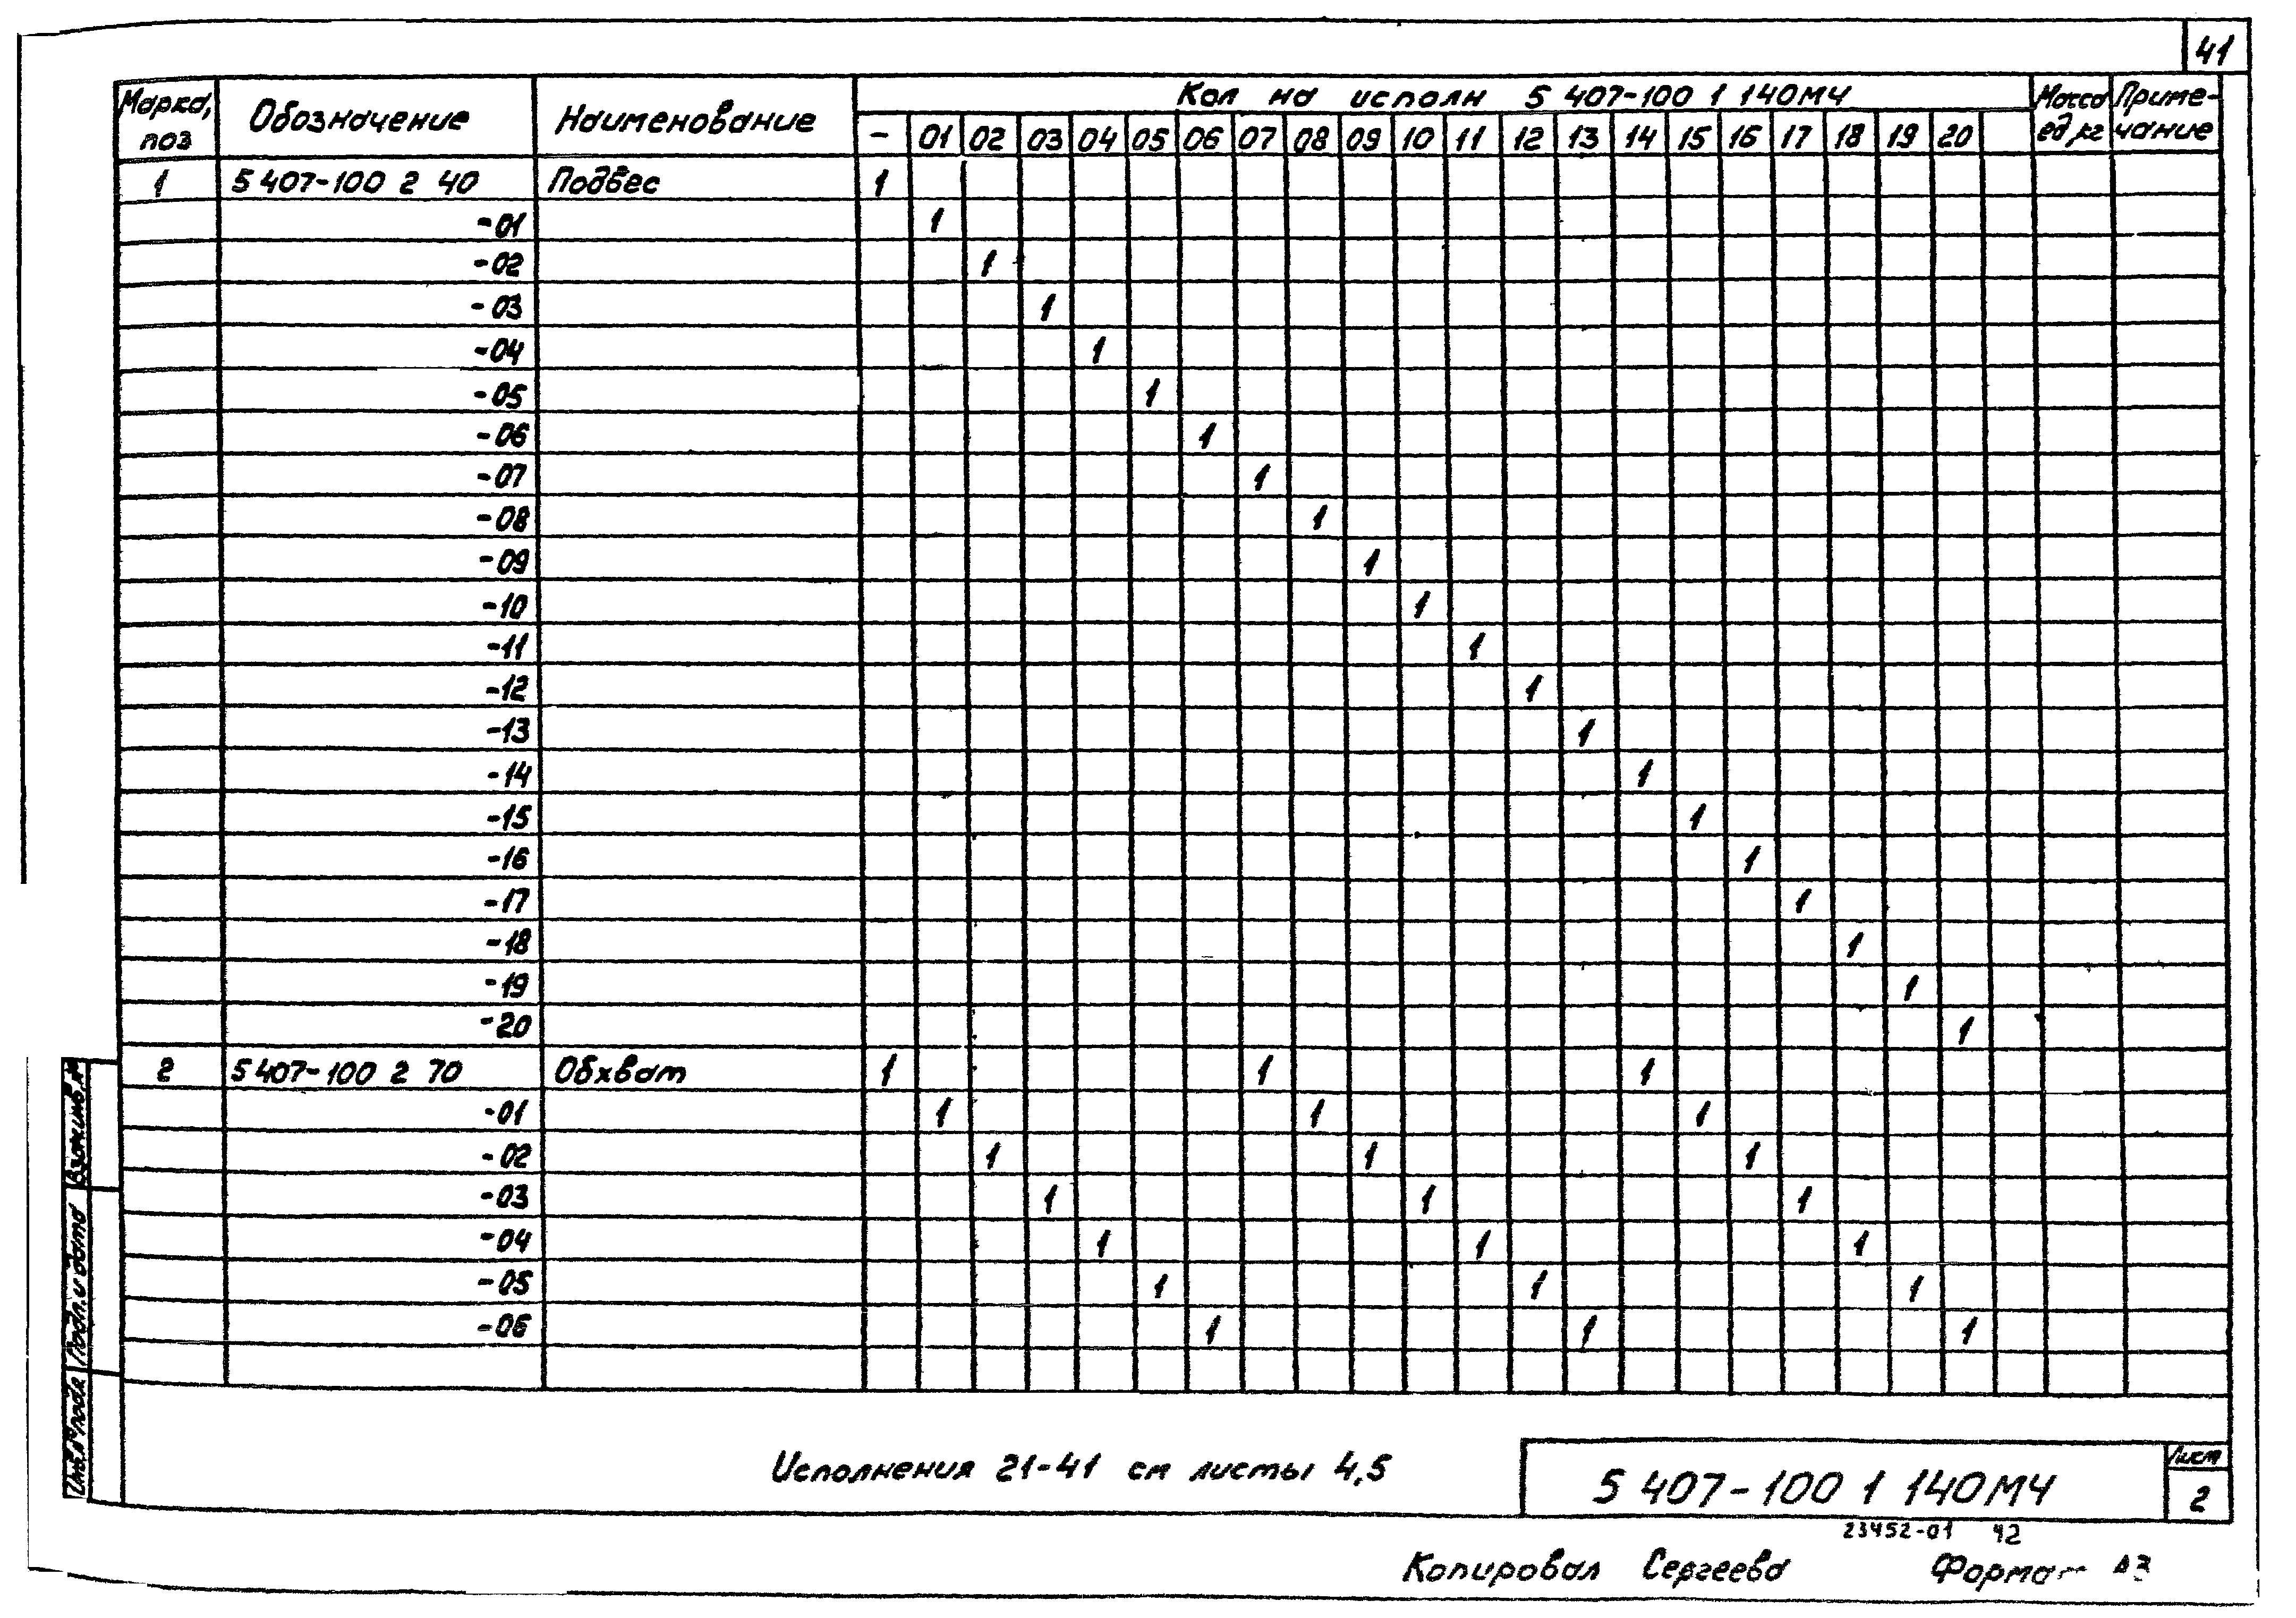 41
Марка, поз Обозначение Наименование Кол на исполн 5 407-100 1 140МЧ Масса ед, кг Приме-чание
– 01 02 03 04 05 06 07 08 09 10 11 12 13 14 15 16 17 18 19 20
1 5 407-100 2 40 Подвес 1
-01 1
-02 1
-03 1
-04 1
-05 1
-06 1
-07 1
-08 1
-09 1
-10 1
-11 1
-12 1
-13 1
-14 1
-15 1
-16 1
-17 1
-18 1
-19 1
-20 1
2 5 407-100 2 70 Обхват 1 1 1
-01 1 1 1
-02 1 1 1
-03 1 1 1
-04 1 1 1
-05 1 1 1
-06 1 1 1
Взам.инв.№
Подп. и дата
Инв.№ подл
Исполнения 21-41 см листы 4,5
5 407-100 1 140МЧ
Лист
2
23452-01 42
Копировал Сергеева Формат А3